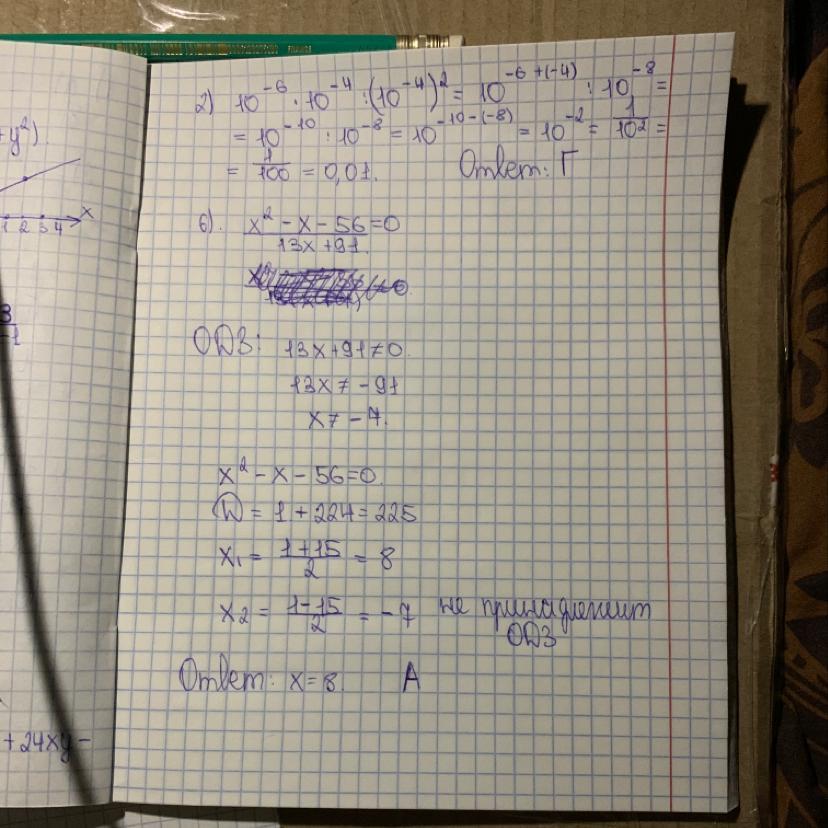 FRANCE
+y²).
x
1 2 3 4
3
-1
+ 24xy -
2) 10⁻⁶ · 10⁻⁴ : (10⁻⁴)² = 10⁻⁶⁺⁽⁻⁴⁾ : 10⁻⁸ =
= 10⁻¹⁰ : 10⁻⁸ = 10⁻¹⁰⁻⁽⁻⁸⁾ = 10⁻² = 1/10² =
= 1/100 = 0,01. Ответ: Г
6). (x² - x - 56)/(13x + 91) = 0
ОДЗ: 13x + 91 ≠ 0.
13x ≠ - 91
x ≠ - 7.
x² - x - 56 = 0.
D = 1 + 224 = 225
x₁ = (1 + 15)/2 = 8
x₂ = (1 - 15)/2 = - 7 не принадлежит
ОДЗ
Ответ: x = 8. А